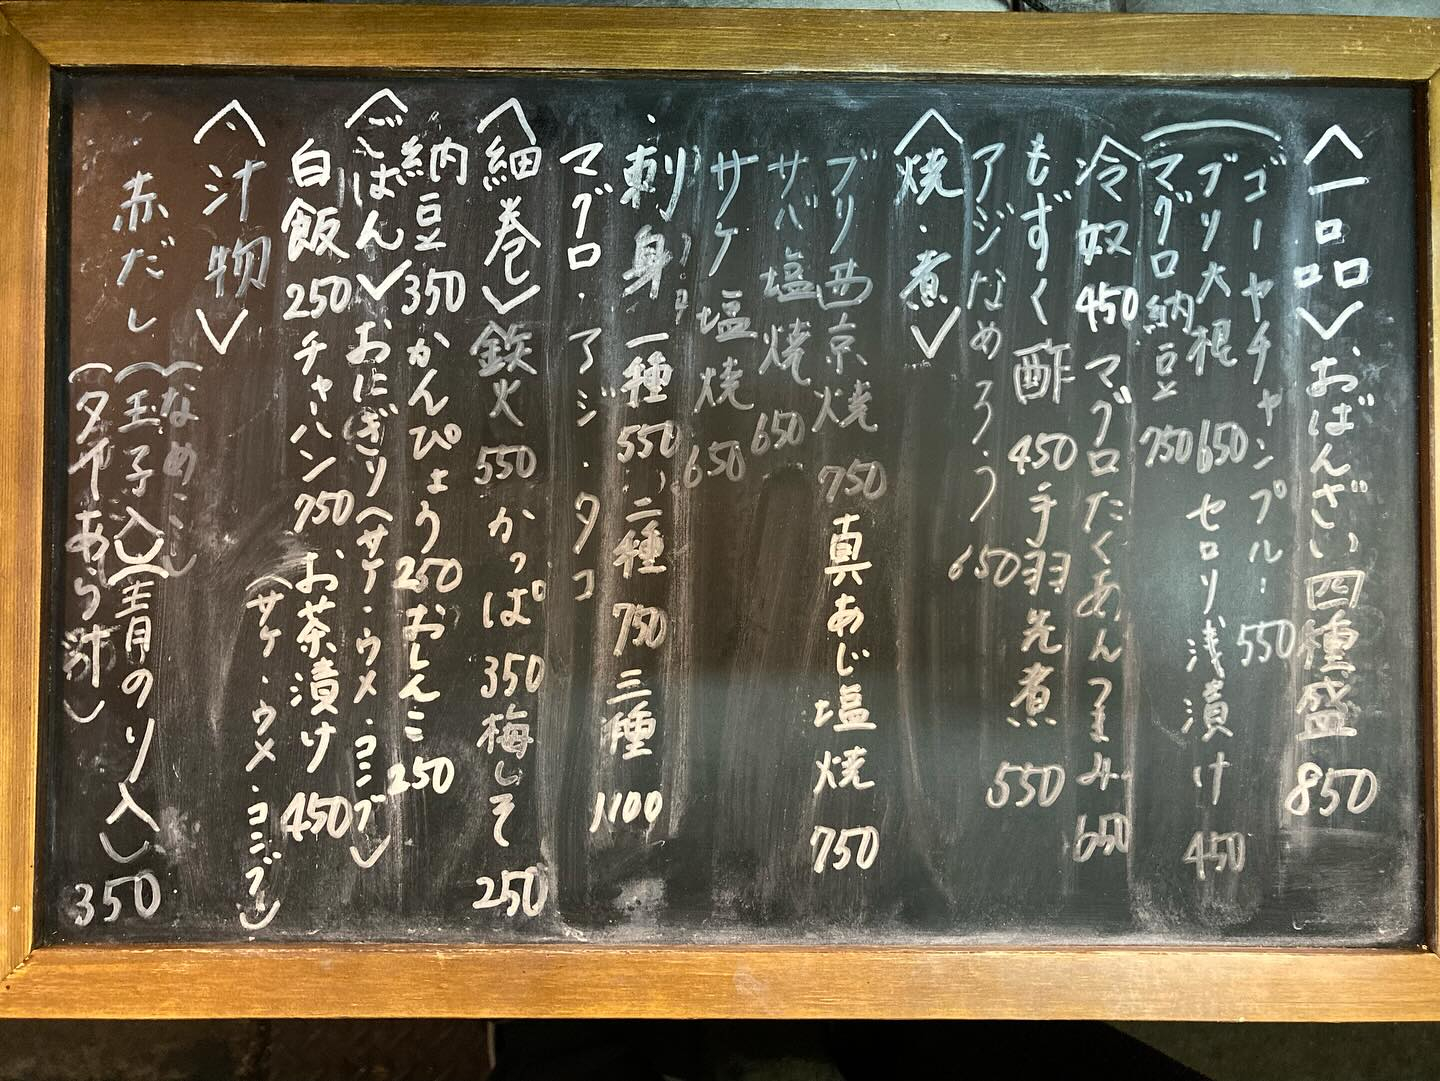 〈一品〉おばんざい四種盛 850
ゴーヤチャンプルー 550
ブリ大根 650 セロリ浅漬け 450
マグロ納豆 750
冷奴 450 マグロたくあんつまみ 650
もずく酢 450 手羽先煮 550
アジなめろう 650
〈焼・煮〉
ブリ西京焼 750 真あじ塩焼 750
サバ塩焼 650
サケ塩焼 650
・刺身 一種 550、二種 750 三種 1100
マグロ・アジ・タコ
〈細巻〉鉄火 550 かっぱ 350 梅しそ 250
納豆 350 かんぴょう 250 おしんこ 250
〈ごはん〉おにぎり(サケ・ウメ・コンブ)
白飯 250 チャーハン 750 お茶漬け 450
(サケ・ウメ・コンブ)
〈汁物〉
(なめこ
赤だし (玉子入)(青のり入) 350
(タイあら汁)